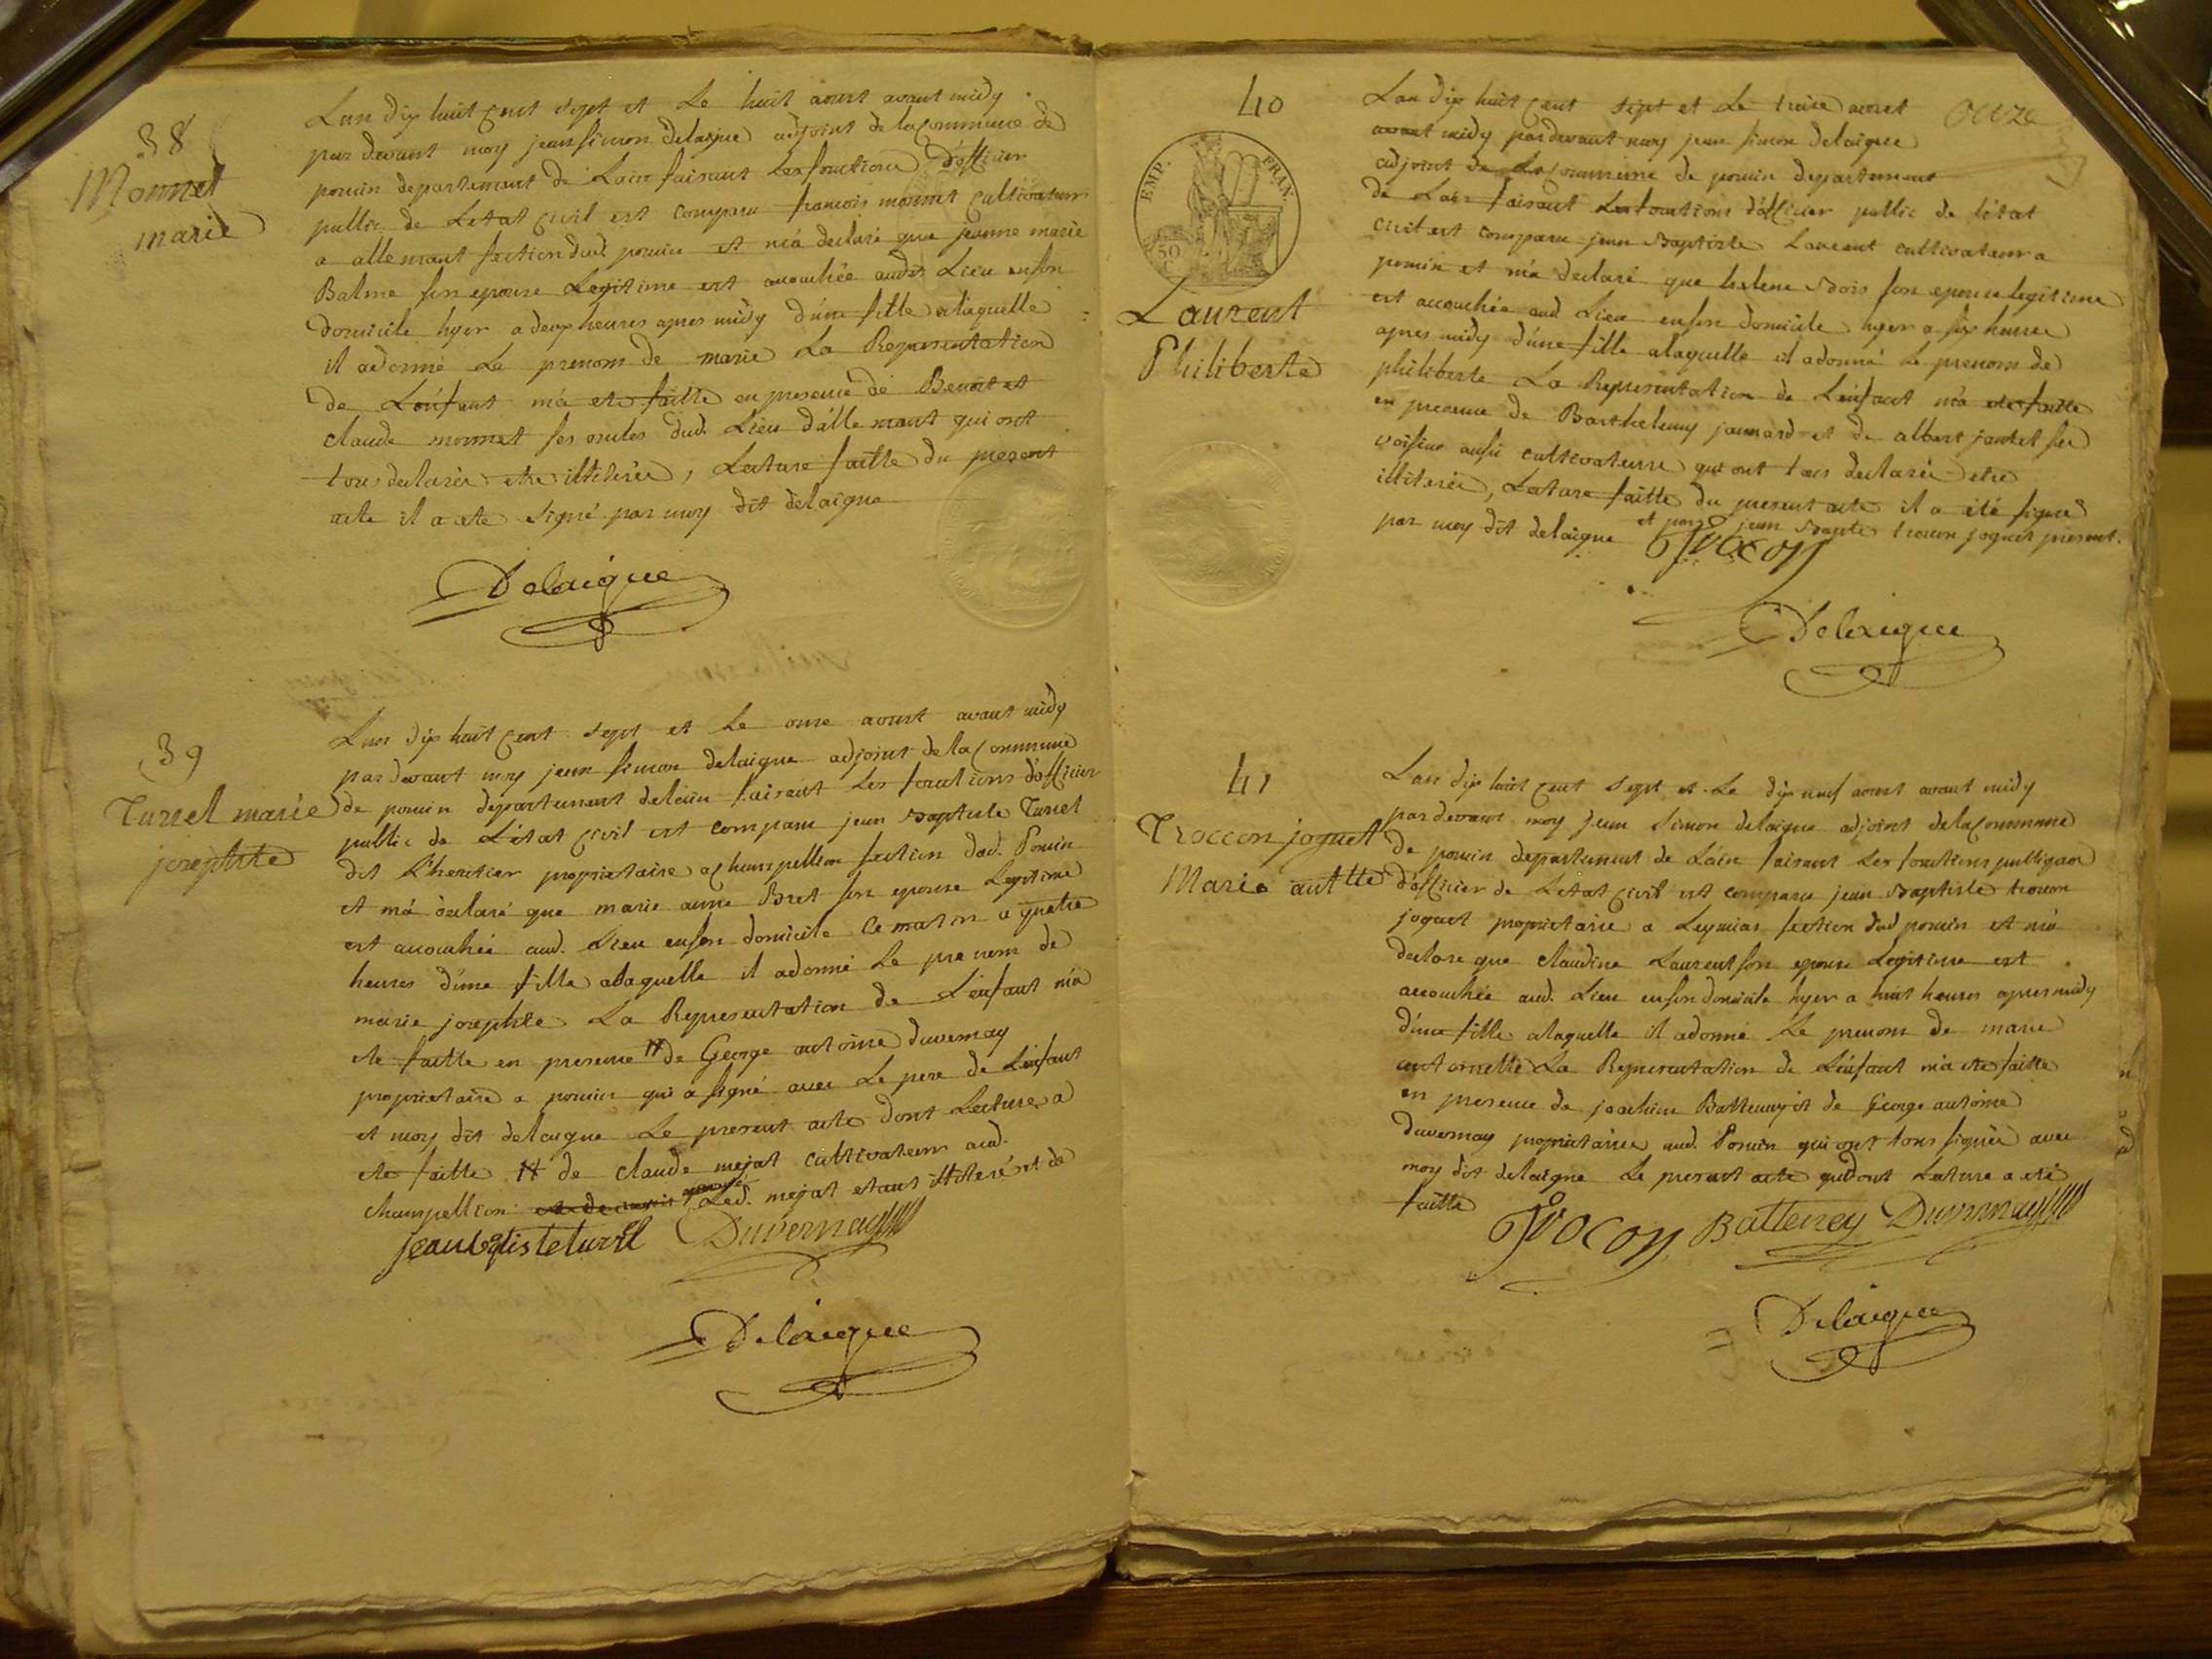 38
Monnet
marie
Lan dix huit cent sept et Le huit aoust avant midy
par devant moy jean simon delaigue adjoint de la commune de
poncin departement de Lain faisant Les fonctions d'officier
public de Letat civil est comparu francois monnet cultivateur
a allemant section dud. poncin et m'a declaré que jeanne marie
Balme son epouse Legitime est acouchée audit Lieu en son
domicile hyer a deux heures apres midy d'une fille alaquelle
il adonné Le prenom de marie La Representation
de L'enfant m'a ete faitte en presence de Benoit et
claude monnet ses oncles dud. Lieu d'allemant qui ont
tous declarés etre illiterés, Lecture faitte du present
acte il a ete signé par moy dit delaigue
Delaigue
39
Turrel marie
josephte
Lan dix huit cent sept et Le onze aoust avant midy
par devant moy jean simon delaigue adjoint de la commune
de poncin departement delain faisant Les fonctions d'officier
public de L'etat civil est comparu jean Baptiste Turrel
dit L'heritier proprietaire a champellion section dud. Poncin
et m'a declaré que marie anne Bret son epouse Legitime
est acouchée aud. Lieu en son domicile Ce matin a quatre
heures d'une fille alaquelle il adonné Le prenom de
marie josephte La Representation de L'enfant m'a
ete faitte en presence # de George antoine duvernay
proprietaire a poncin qui a signé avec Le pere de L'enfant
et moy dit delaigue Le present acte dont Lecture a
ete faitte # de claude mejat cultivateur aud.
champellion Led. mejat etant illiteré et de
jean batiste turel Duvernay
Delaigue
40
EMP. FRAN.
50
C
Laurent
Philiberte
onze
Lan dix huit cent sept et Le treize aoust
avant midy pardevant moy jean simon delaigue
adjoint de La commune de poncin departement
de Lain faisant Les fonctions d'officier public de l'etat
civil est comparu jean Baptiste Laurent cultivateur a
poncin et m'a declaré que helene Bois son epouse legitime
est acouchée aud Lieu en son domicile hyer a six heures
apres midy d'une fille alaquelle il adonné Le prenom de
philiberte La Representation de L'enfant m'a ete faitte
en presence de Barthelemy jannard et de albert jantet ses
voisins aussi cultivateurs qui ont tous declarés etre
illiterés, Lecture faitte du present acte il a été signé
par moy dit delaigue et par jean Bapte trocon joguet present.
Trocon
Delaigue
41
Troccon joguet
Marie anttte
Lan dix huit cent sept et Le dix neuf aoust avant midy
par devant moy jean simon delaigue adjoint dela commune
de poncin departement de Lain faisant Les fonctions publiques
d'officier de Letat civil est comparu jean Baptiste trocon
joguet proprietaire a Leymiat section dud poncin et m'a
declaré que claudine Laurent son epouse Legitime est
acouchée aud. Lieu en son domicile hyer a huit heures apres midy
d'une fille alaquelle il adonné Le prenom de marie
antoinette La Representation de L'enfant m'a ete faitte
en presence de joachim Battenay et de George antoine
Duvernay proprietaires aud. Poncin qui ont tous signés avec
moy dit delaigue Le present acte dont Lecture a eté
faitte
Trocon Batteney Duvernay
Delaigue